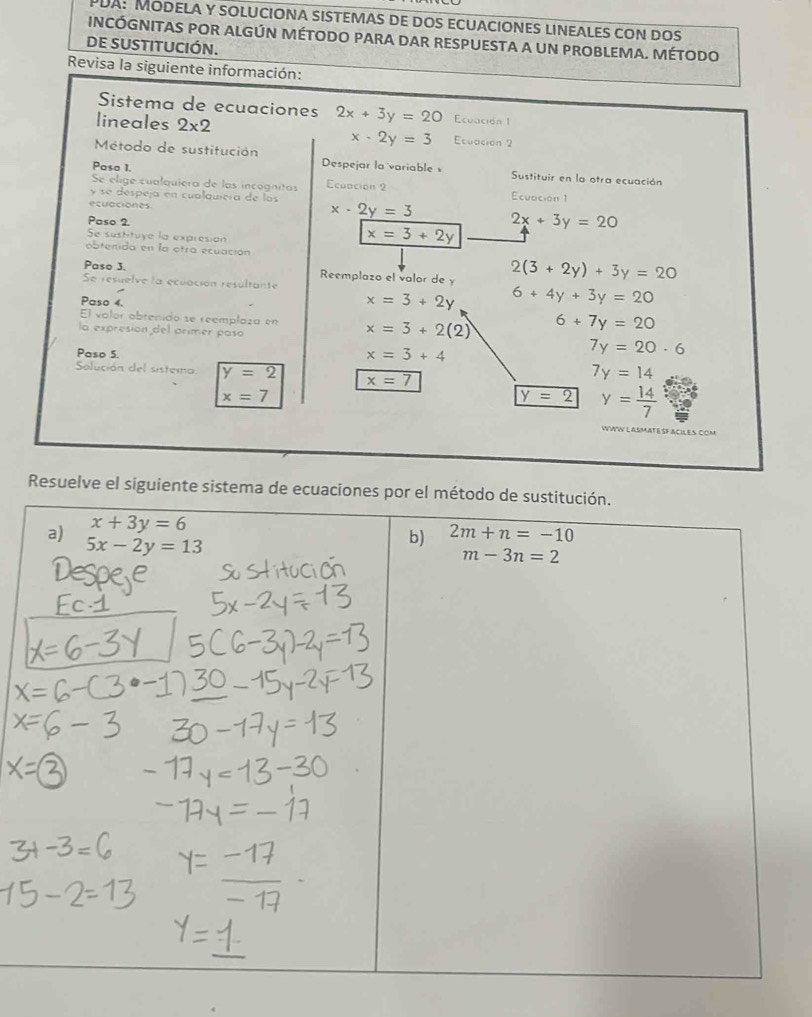 PDA: MODELA Y SOLUCIONA SISTEMAS DE DOS ECUACIONES LINEALES CON DOS
INCÓGNITAS POR ALGÚN MÉTODO PARA DAR RESPUESTA A UN PROBLEMA. MÉTODO
DE SUSTITUCIÓN.
Revisa la siguiente información:
Sistema de ecuaciones
lineales 2x2
2x + 3y = 20 Ecuación 1
x - 2y = 3 Ecuación 2
Método de sustitución
Paso 1.
Se elige cualquiera de las incógnitas
y se despeja en cualquiera de las
ecuaciones.
Paso 2.
Se sustituye la expresión
obtenida en la otra ecuación
Paso 3.
Se resuelve la ecuación resultante
Paso 4.
El valor obtenido se reemplaza en
la expresión del primer paso
Paso 5.
Solución del sistema
y = 2
x = 7
Despejar la variable x
Ecuación 2
x - 2y = 3
x = 3 + 2y
Reemplazo el valor de y
x = 3 + 2y
x = 3 + 2(2)
x = 3 + 4
x = 7
Sustituir en la otra ecuación
Ecuación 1
2x + 3y = 20
2(3 + 2y) + 3y = 20
6 + 4y + 3y = 20
6 + 7y = 20
7y = 20 - 6
7y = 14
y = 2 y = 14/7
WWW.LASMATESFACILES.COM
Resuelve el siguiente sistema de ecuaciones por el método de sustitución.
a) x + 3y = 6
5x - 2y = 13
Despeje
Ec.1
x=6-3y
x=6-(3•-1)
x=6-3
x=3
3+-3=6
15-2=13
sustitución
5x-2y=13
5(6-3y)-2y=13
30-15y-2y=13
30-17y=13
-17y=13-30
-17y=-17
y= -17/-17
y=1
b) 2m + n = -10
m - 3n = 2